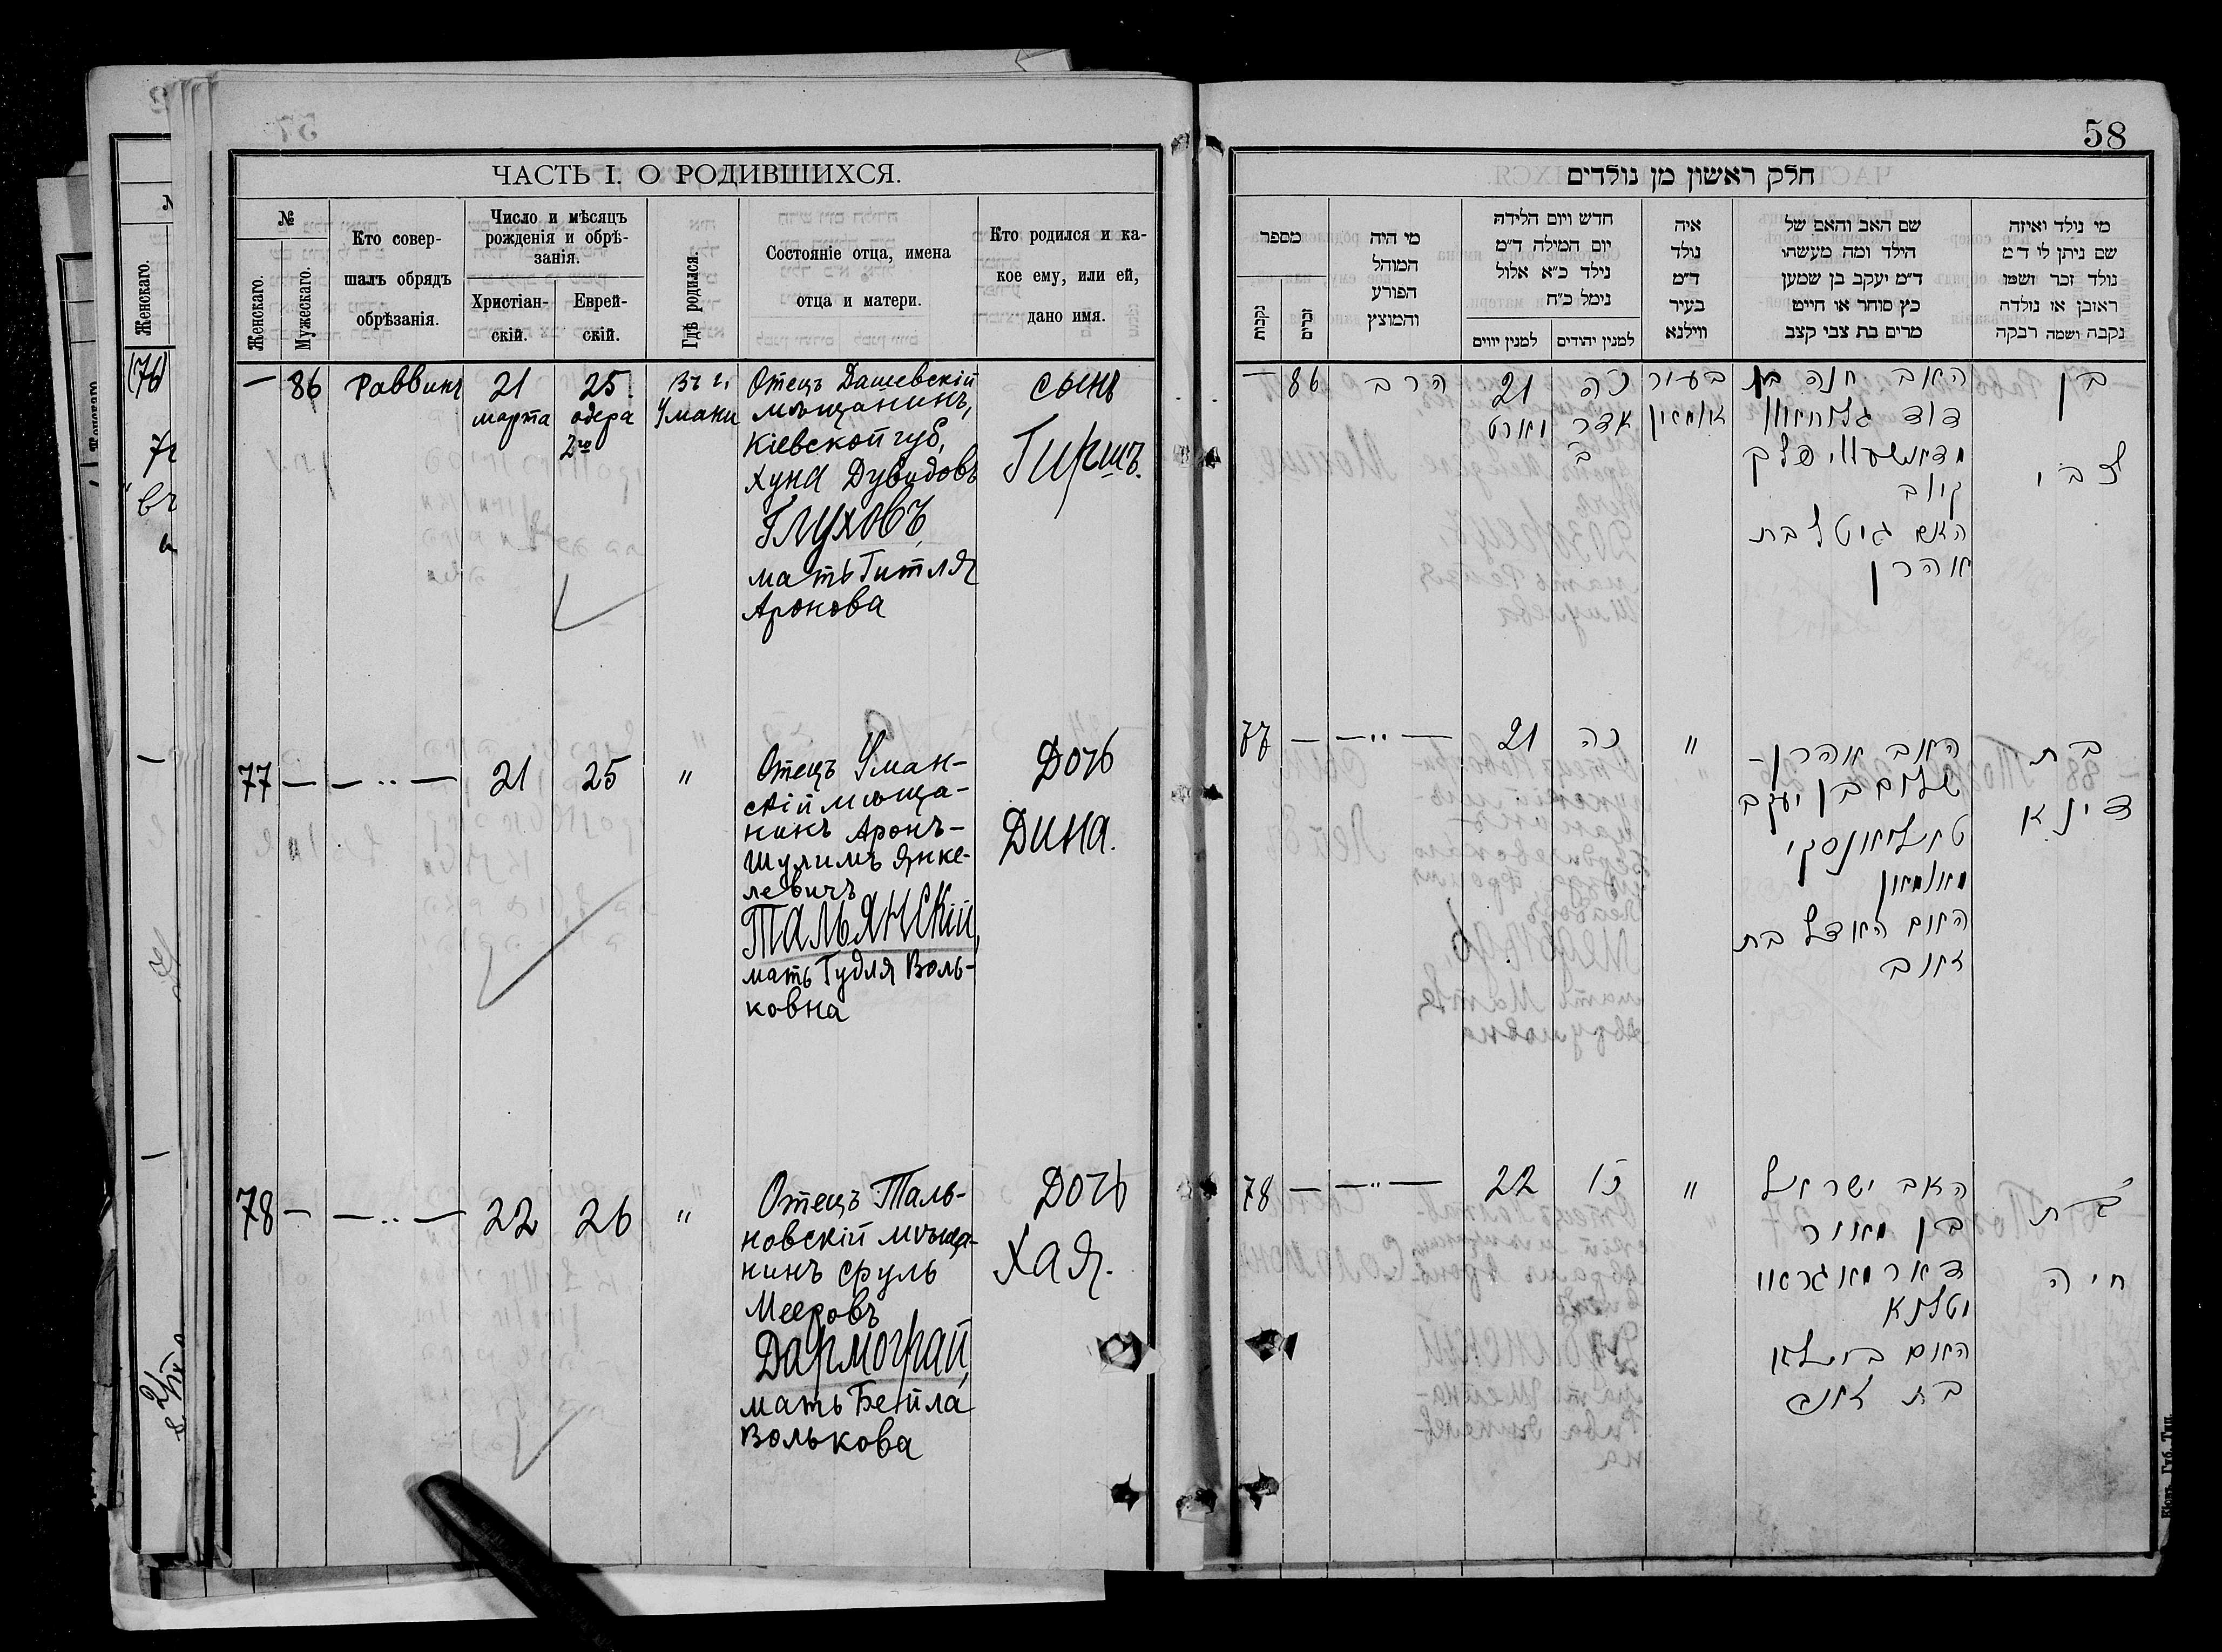 ЧАСТЬ I. О РОДИВШИХСЯ.
№
Женскаго.
Мужескаго.
Кто совер-
шалъ обрядъ
обрѣзанія.
Число и мѣсяцъ
рожденія и обрѣ-
занія.
Христіан-
скій.
Еврей-
скій.
Гдѣ родился.
Состояніе отца, имена
отца и матери.
Кто родился и ка-
кое ему, или ей,
дано имя.
— 86 Раввинъ 21 марта 25 адера 2го Въ г. Умани
Отецъ Дашевскій
мѣщанинъ,
Кіевской губ,
Хуна Дувидовъ
Глуховъ,
мать Гитля
Аронова
сынъ
Гиршъ.
77 — — „ — 21 25 „
Отецъ Уман-
скій мѣща-
нинъ Аронъ-
Шулимъ Янке-
левичъ
Тальянскій,
мать Гудля Воль-
ковна
Дочь
Дина.
78 — — „ — 22 26 „
Отецъ Таль-
новскій мѣща-
нинъ Сруль
Мееровъ
Дармограй,
мать Бейла
Волькова
Дочь
Хая.
58
חלק ראשון מן נולדים
מספר
נקבות
זכרים
מי היה
המוהל
הפורע
והמוצץ
חדש ויום הלידה
יום המילה ד״מ
נילד כ״א אלול
נימל כ״ח
למנין יווים
למנין יהודים
איה
נולד
ד״מ
בעיר
ווילנא
שם האב והאם של
הילד ומה מעשהו
ד״מ יעקב בן שמען
כץ סוחר או חייט
מרים בת צבי קצב
מי נולד ואיזה
שם ניתן לו ד״מ
נולד זכר ושמו
ראובן או נולדה
נקבה ושמה רבקה
— 86 הרב 21 מארט כה אדר ב בעיר אומאן
האב חנה בן
דוד
קיוב
האם גיטל בת
אהרן
בן
צבי
77 — — „ — 21 כה „
האב אהרן-
שלום בן יעקב
טאליאנסקי
מאומאן
האם האדל בת
זאב
בת
דינא
78 — — „ — 22 כו „
האב ישראל
בן מאיר
דארמאגראיי
האם ביילא
בת זאב
בת
חיה
Кіевъ. Губ. Тип.